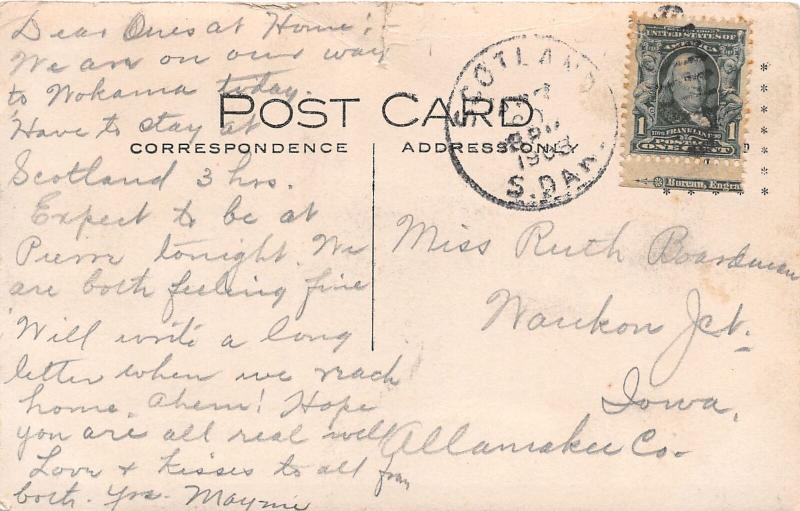 Dear Ones at Home:-
We are on our way
to Wokama today.
Have to stay at
Scotland 3 hrs.
Expect to be at
Pierre tonight. We
are both feeling fine
Will write a long
letter when we reach
home. Ahem! Hope
you are all real well
Love & kisses to all from
both. Yrs. Mayme
POST CARD
CORRESPONDENCE
ADDRESS ONLY
SCOTLAND
1908
S. DAK.
UNITED STATES OF
AMERICA
1 FRANKLIN 1
POSTAGE
ONE CENT
Bureau, Engra
Miss Ruth Boardman
Waukon Jct.
Iowa.
Allamakee Co.